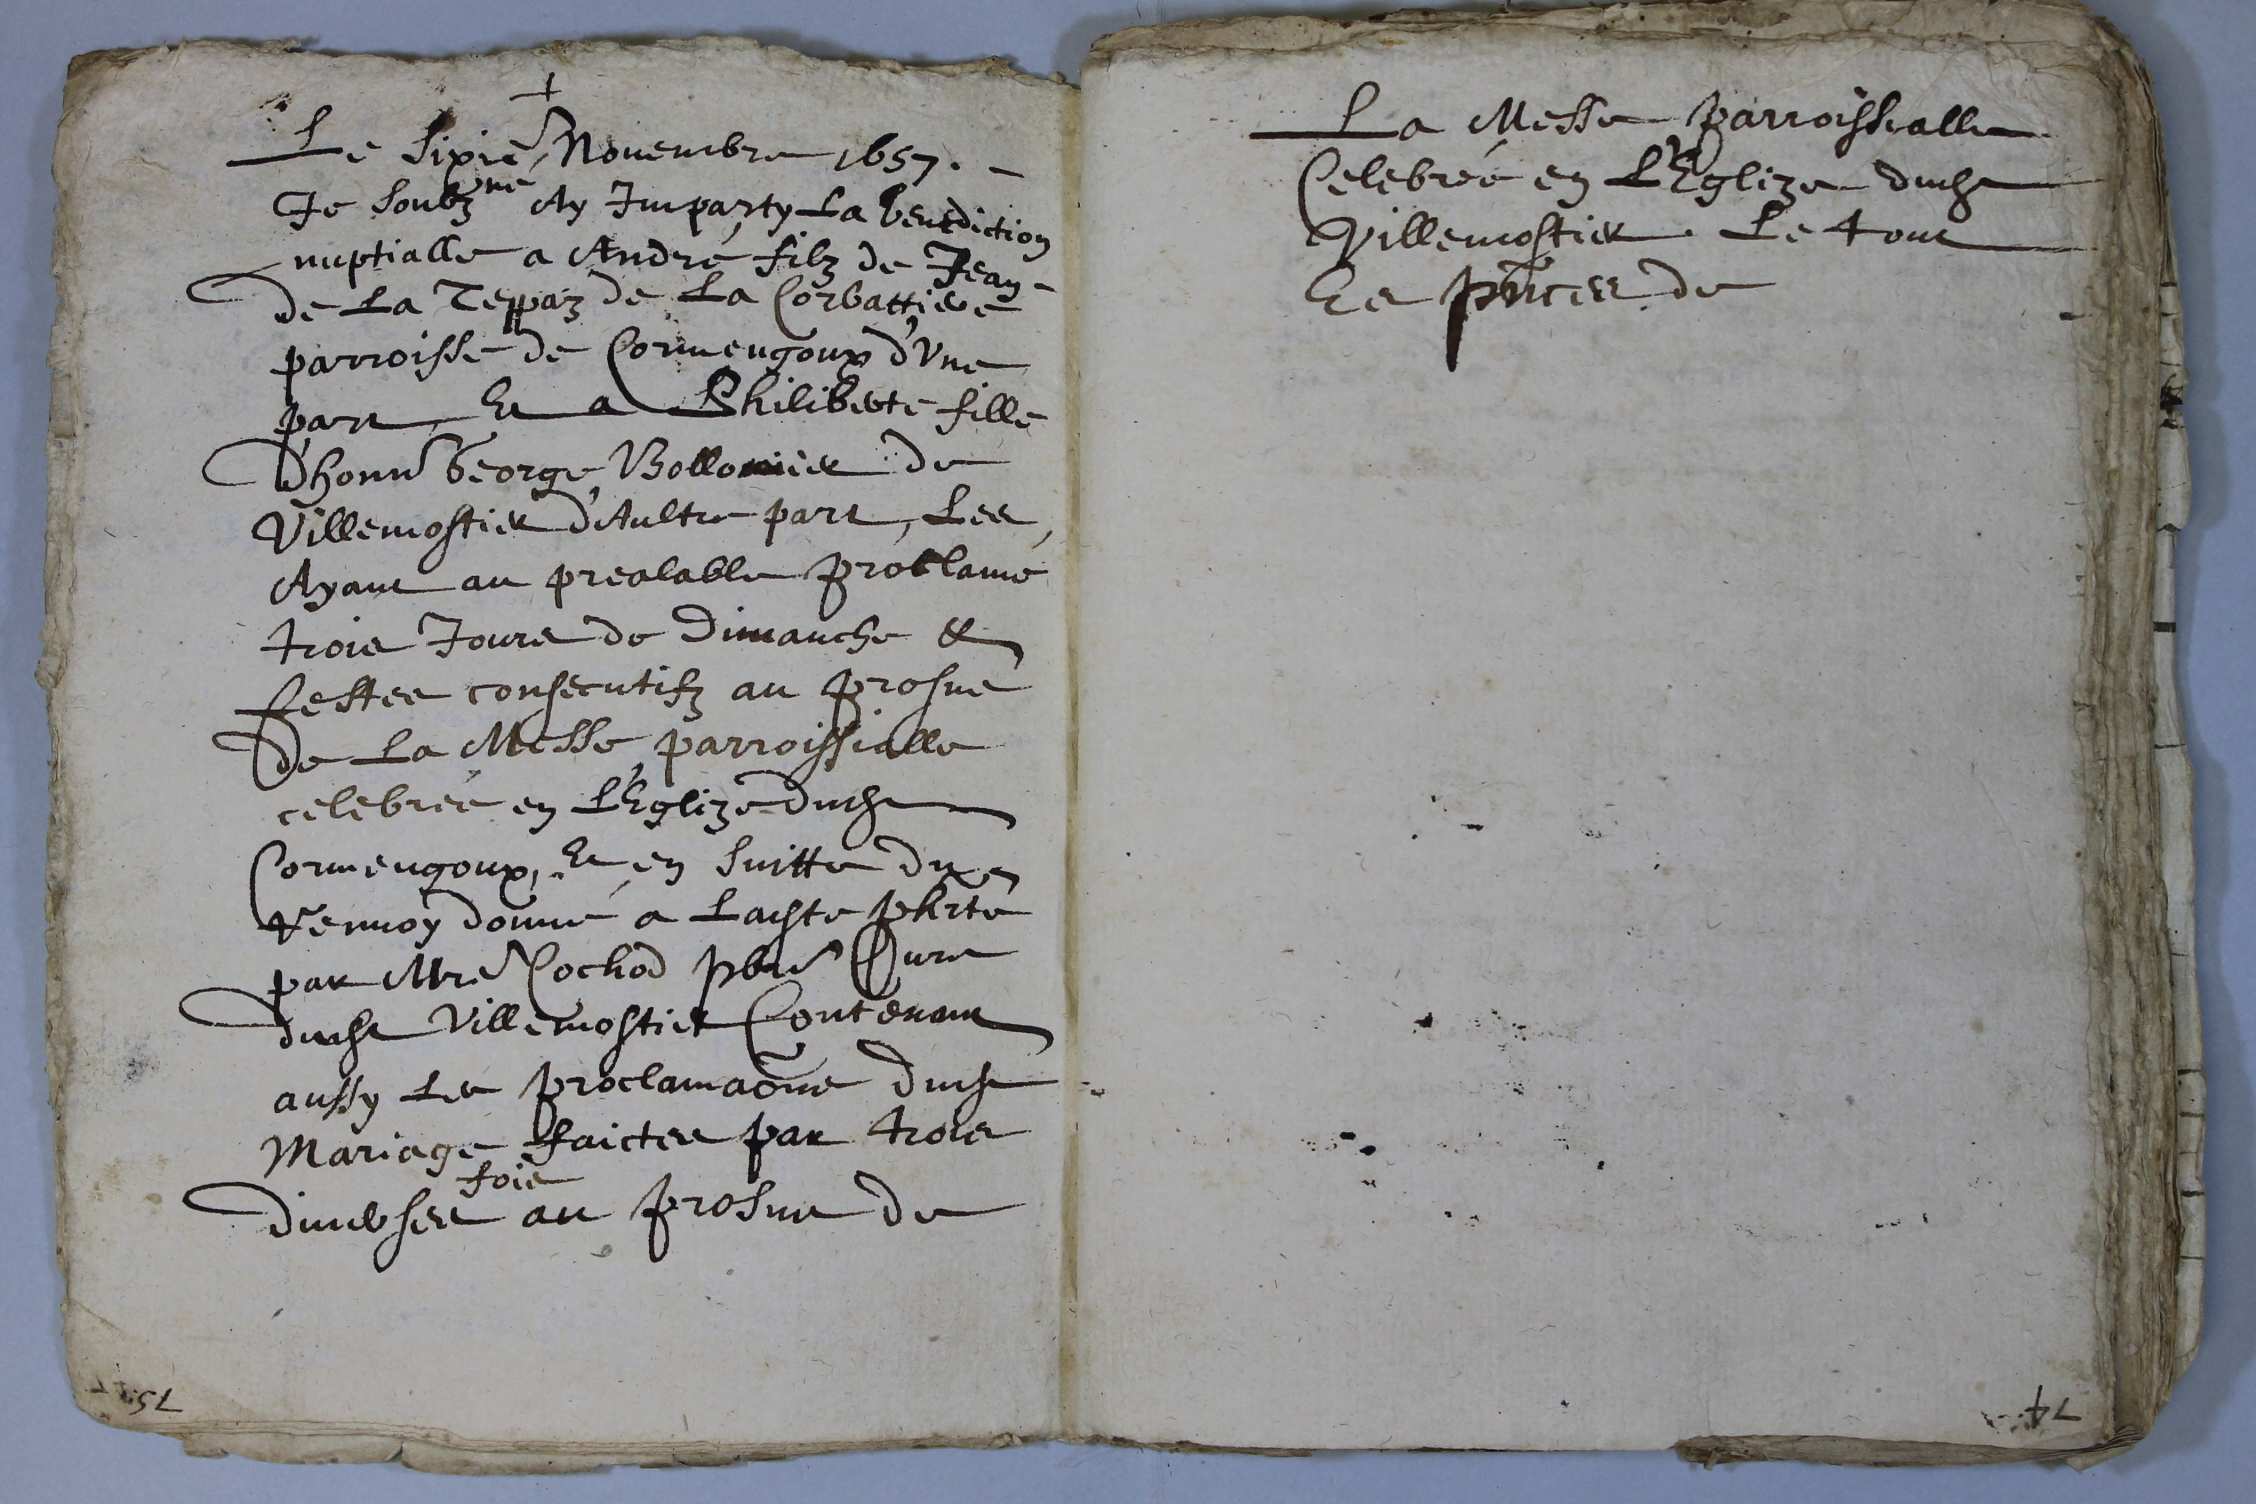 +
Le sixie Novembre 1657. -
Je soubz.né Ay Imparty La benediction
nuptialle a André filz de Jean
de La Teppaz de La Corbattiere
parroisse de Cormengoux d'Une
part Et a Philiberte fille
D'honn George Bollomier de
Villemostier d'Aultre part, Les
Ayant au prealable proclamé
trois Jours de Dimanche &
festes consecutifz au prosne
De La Messe parroissialle
celebreé en L'Eglize dudt
Cormengoux, Et en suitte du
Renuoy donné a Ladte phrte
par Mre Cochod pbre Cure
dudt Villemostier Contenant
aussy Les proclamaõns dudt
Mariage faictes par trois
fois
diuerses au prosne de
75
La Messe parroissialle
Celebreé en L'Eglize dudt
Villemostier Le tout
Es pñces de
74